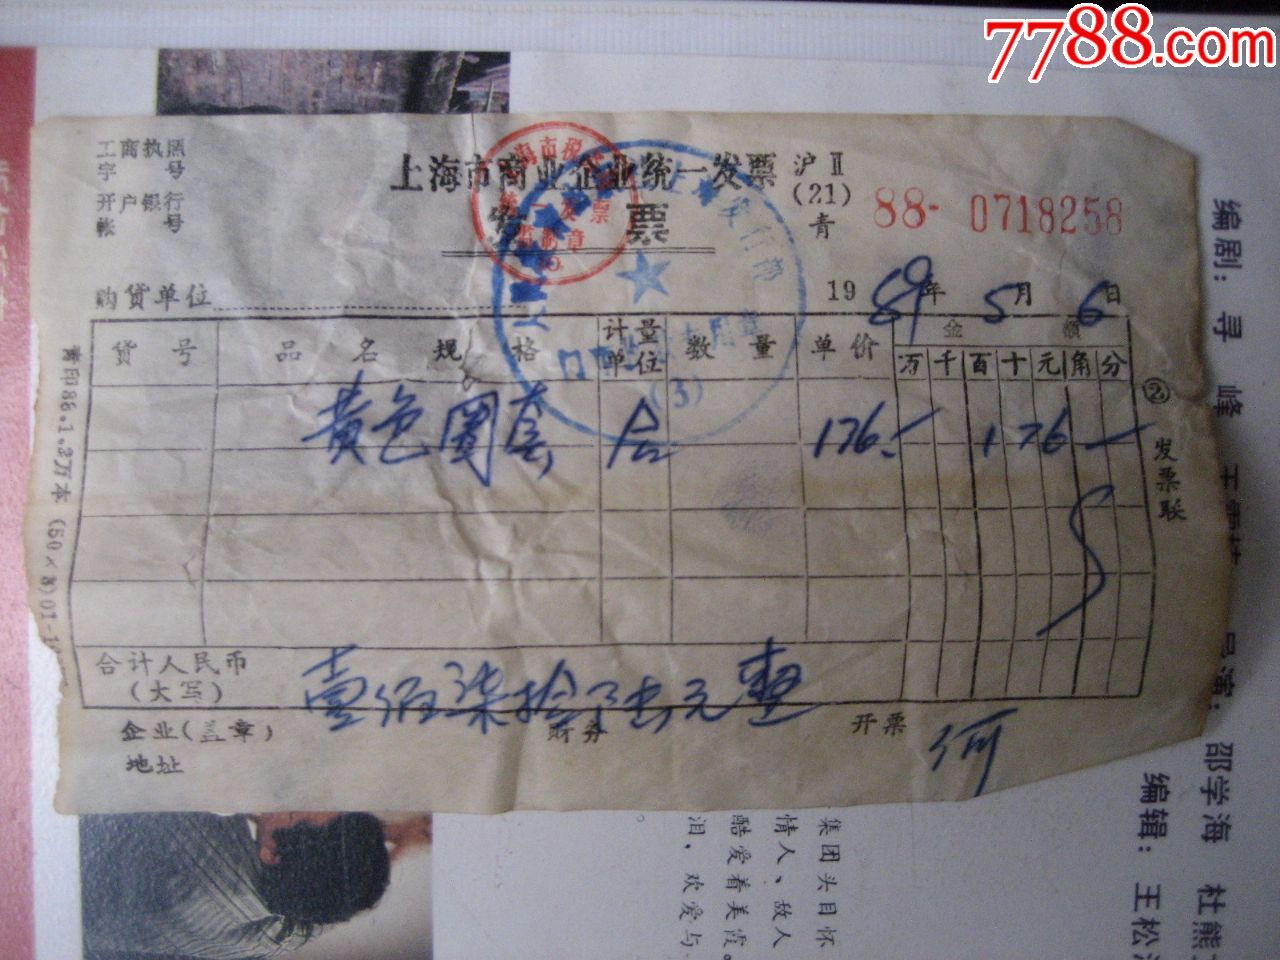 7788.com
中国收藏热线
工商执照
字 号
开户银行
帐 号
上海市商业企业统一发票
发 票
沪Ⅱ
(21)
青
88- 0718258
购货单位
1989年5月6日
货号 品名规格 计量单位 数量 单价 金额
万千百十元角分
黄色 套 合 176.- 176-
合计人民币
(大写)
壹佰柒拾陆元整
企业(盖章) 财务 开票 何
地址
② 发票联
青印88.1.2万本(50×3)01-1
统一发票
(3)
编剧: 寻 峰
邵学海 杜熊
编辑: 王松
集团头目怀
情人、敌人
酷爱着美霞。
泪,欢爱与